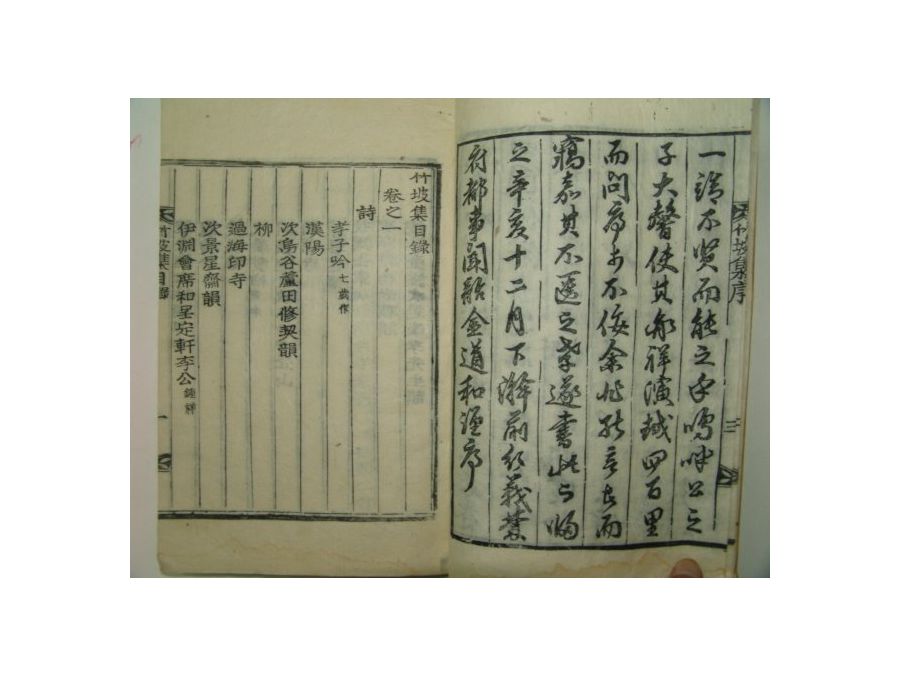 竹坡集序 三
不賢而能之乎嗚呼公之
子大馨使其孫祥演越四百里
而問序於不佞余非能言而
竊嘉其不匱之孝遂書此以歸
之辛亥十二月下澣前行義禁
府都事聞韶金道和謹序
竹坡集目錄
卷之一
詩
孝子吟 七歲作
漢陽
次鳥谷蘆田修契韻
柳
過海印寺
次景星齋韻
伊淵會席和呈定軒李公 鍾祥
竹坡集目錄 一